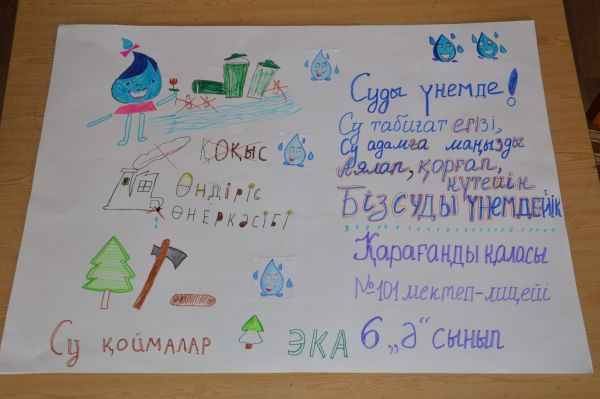 ҚОҚЫС
Өндіріс
өнеркәсібі
Су қоймалар
ЭКА
Суды үнемде!
Су табиғат егізі,
Су адамға маңызды
Аялап, қорғап,
күтейік
Біз суды үнемдейік
Қарағанды қаласы
№101 мектеп-лицейі
6 "ә" сынып